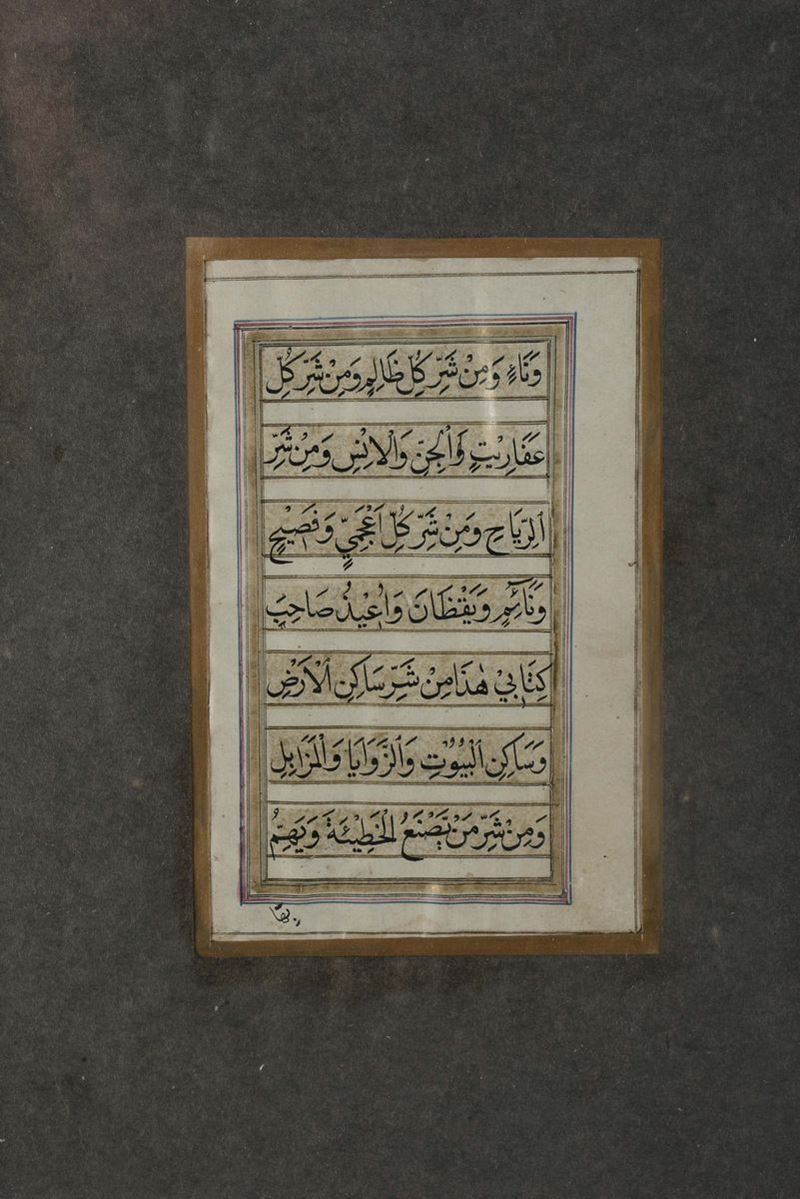 وَنَاءٍ وَمِنْ شَرِّ كُلِّ ظَالِمٍ وَمِنْ شَرِّ كُلِّ
عَفَارِيْتٍ وَالْجِنِّ وَالْاِنْسِ وَمِنْ شَرِّ
اَلرِّيَاحِ وَمِنْ شَرِّ كُلِّ اَعْجَمِيٍّ وَفَصِيْحٍ
وَنَائِمٍ وَيَقْظَانَ وَاُعِيْذُ صَاحِبَ
كِتَابِيْ هٰذَا مِنْ شَرِّ سَاكِنِ الْاَرْضِ
وَسَاكِنِ الْبُيُوْتِ وَالزَّوَايَا وَالْمَزَابِلِ
وَمِنْ شَرِّ مَنْ يَصْنَعُ الْخَطِيْئَةَ وَيَهِمُّ
بها